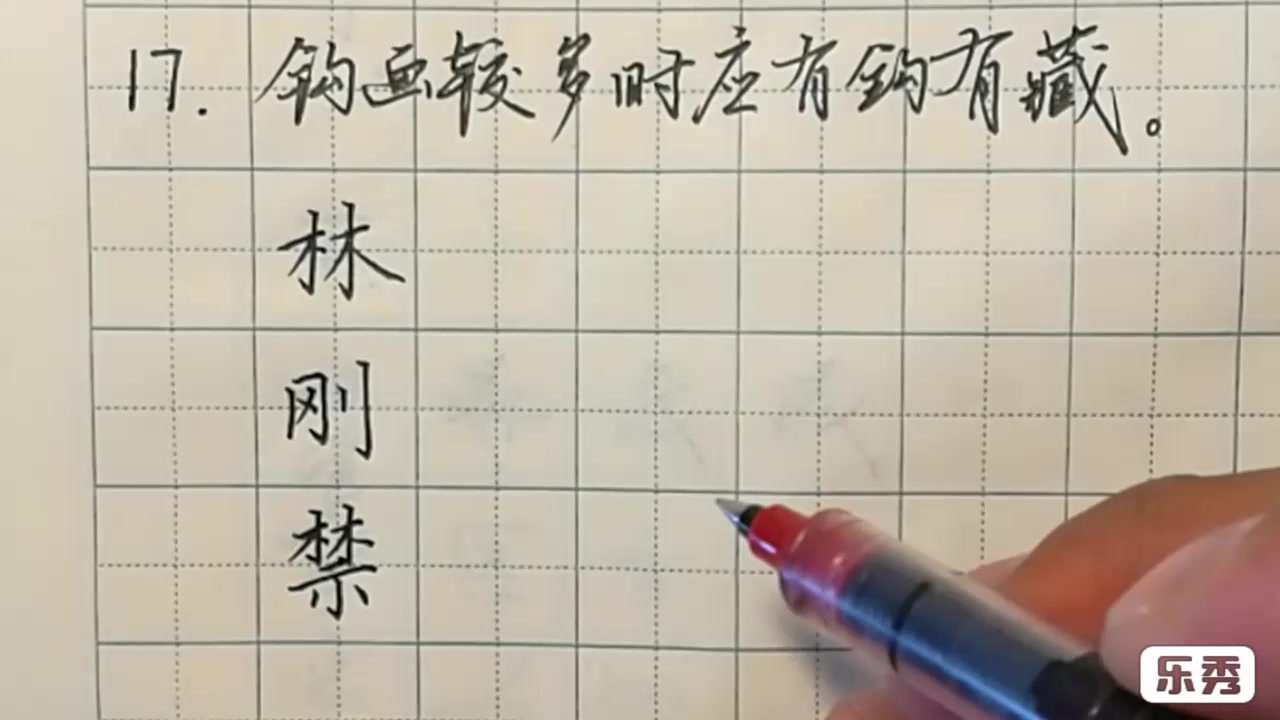 17. 钩画较多时应有钩有藏。
林
刚
禁
乐秀